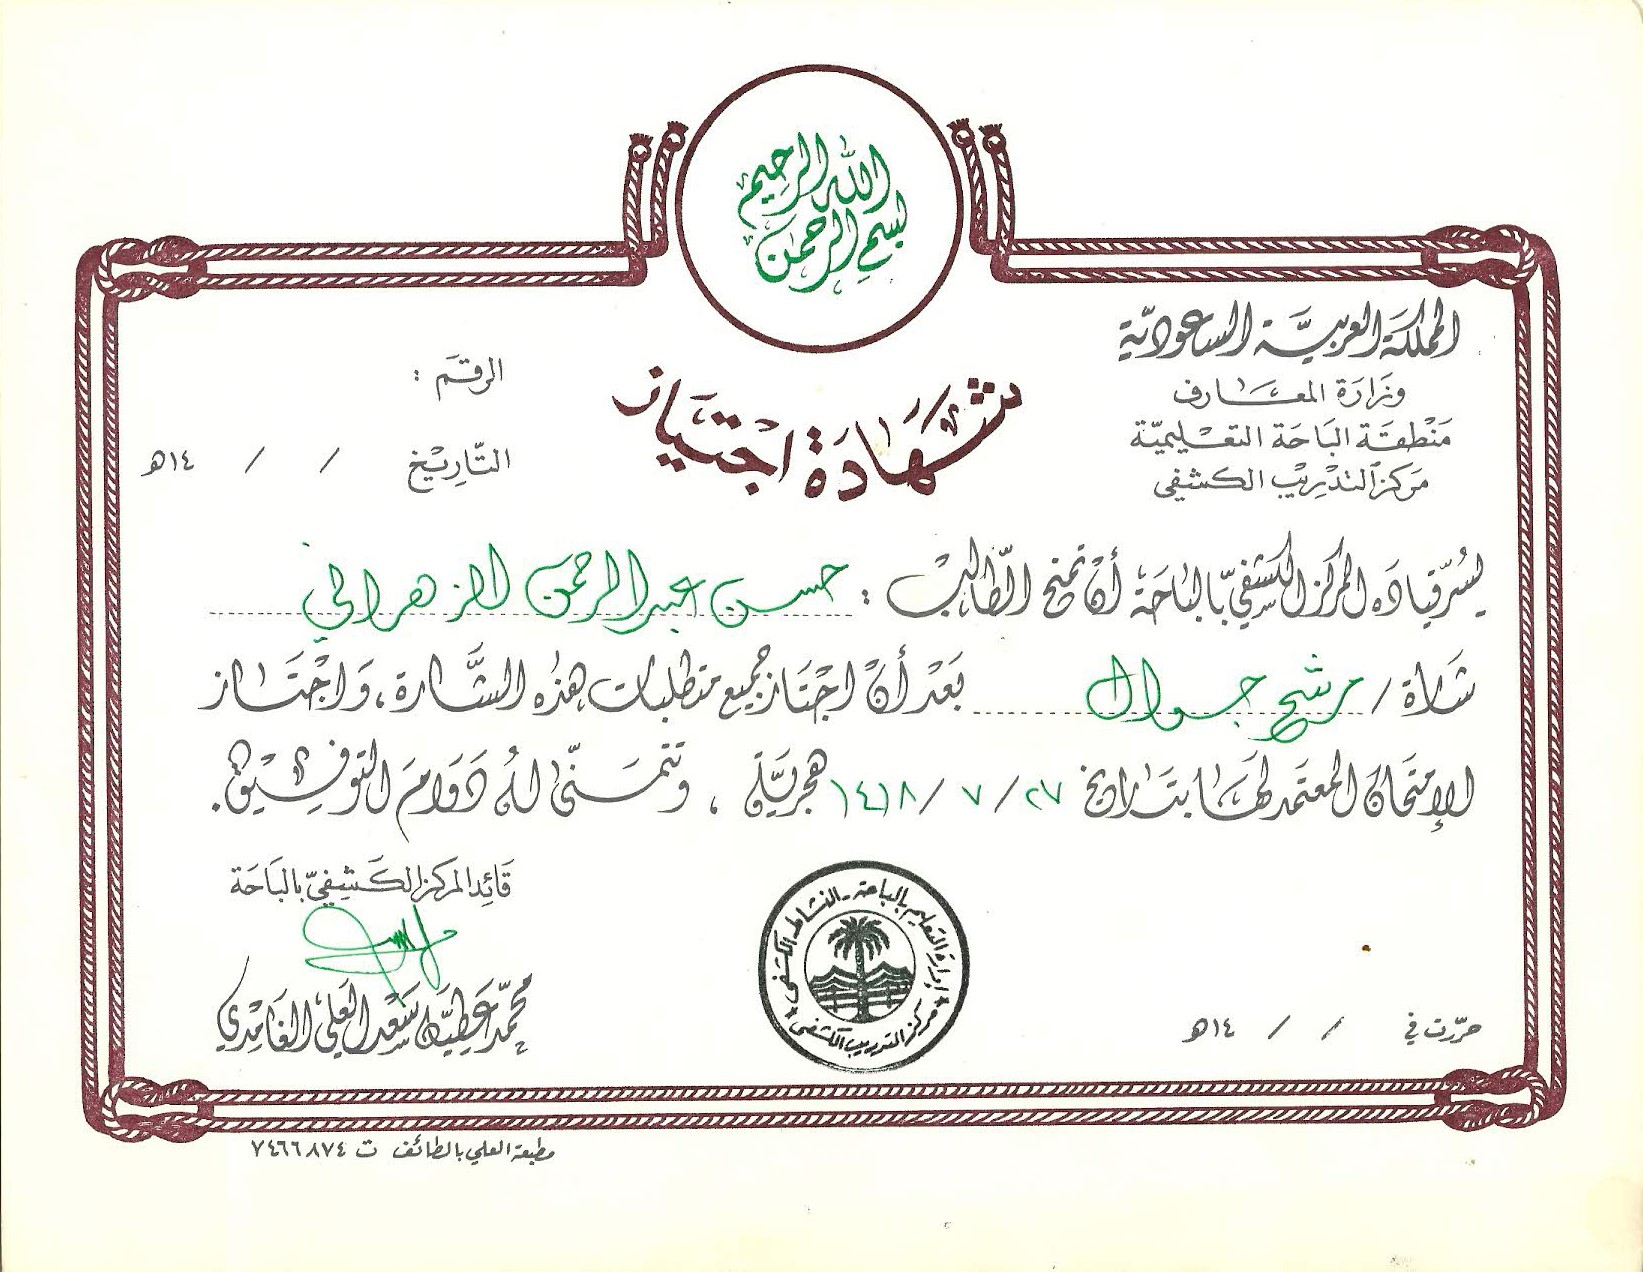 بسم الله الرحمن الرحيم
المملكة العربية السعودية
وزارة المعارف
منطقة الباحة التعليمية
مركز التدريب الكشفي
شهادة اجتياز
الرقم :
التاريخ / / ١٤هـ
يسر قيادة المركز الكشفي بالباحة أن تمنح الطالب : حسن عبدالرحمن الزهراني
شارة / مرشح جوال بعد أن اجتاز جميع متطلبات هذه الشارة، واجتاز
الامتحان المعتمد لها بتاريخ ٢٧ / ٧ / ١٤١٨ هجرية ، وتتمنى له دوام التوفيق.
قائد المركز الكشفي بالباحة
محمد عطية سعد العلي الغامدي
إدارة التعليم بالباحة - النشاط الكشفي
مركز التدريب الكشفي
حررت في / / ١٤هـ
مطبعة العلي بالطائف ت ٧٤٦٦٨٧٤